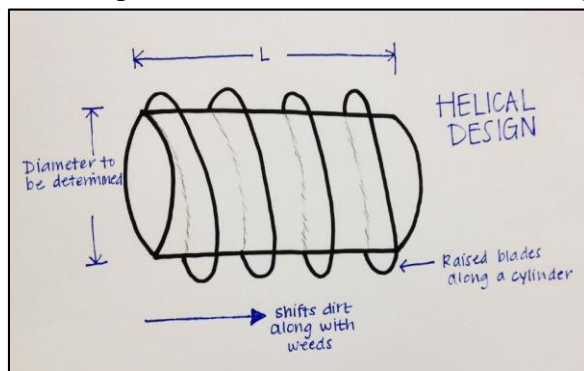 L
HELICAL
DESIGN
Diameter to
be determined
Raised blades
along a cylinder
shifts dirt
along with
weeds